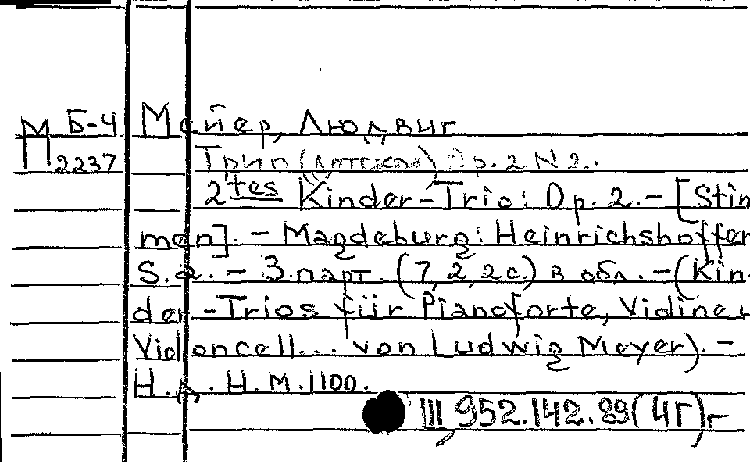 М Б-4 Мейер, Людвиг
П 2237 Трио (детское) Op. 2 N 2.
2tes Kinder-Trio: Op. 2. - [Stim
men]. - Magdeburg: Heinrichshoffen
S.a. - 3 парт. (7, 2, 2 с.) в обл. - (Kin
der-Trios für Pianoforte, Violine u
Violoncell... von Ludwig Meyer). -
Н.д. H.M. 1100.
III, 952.142.89 (4Г) -